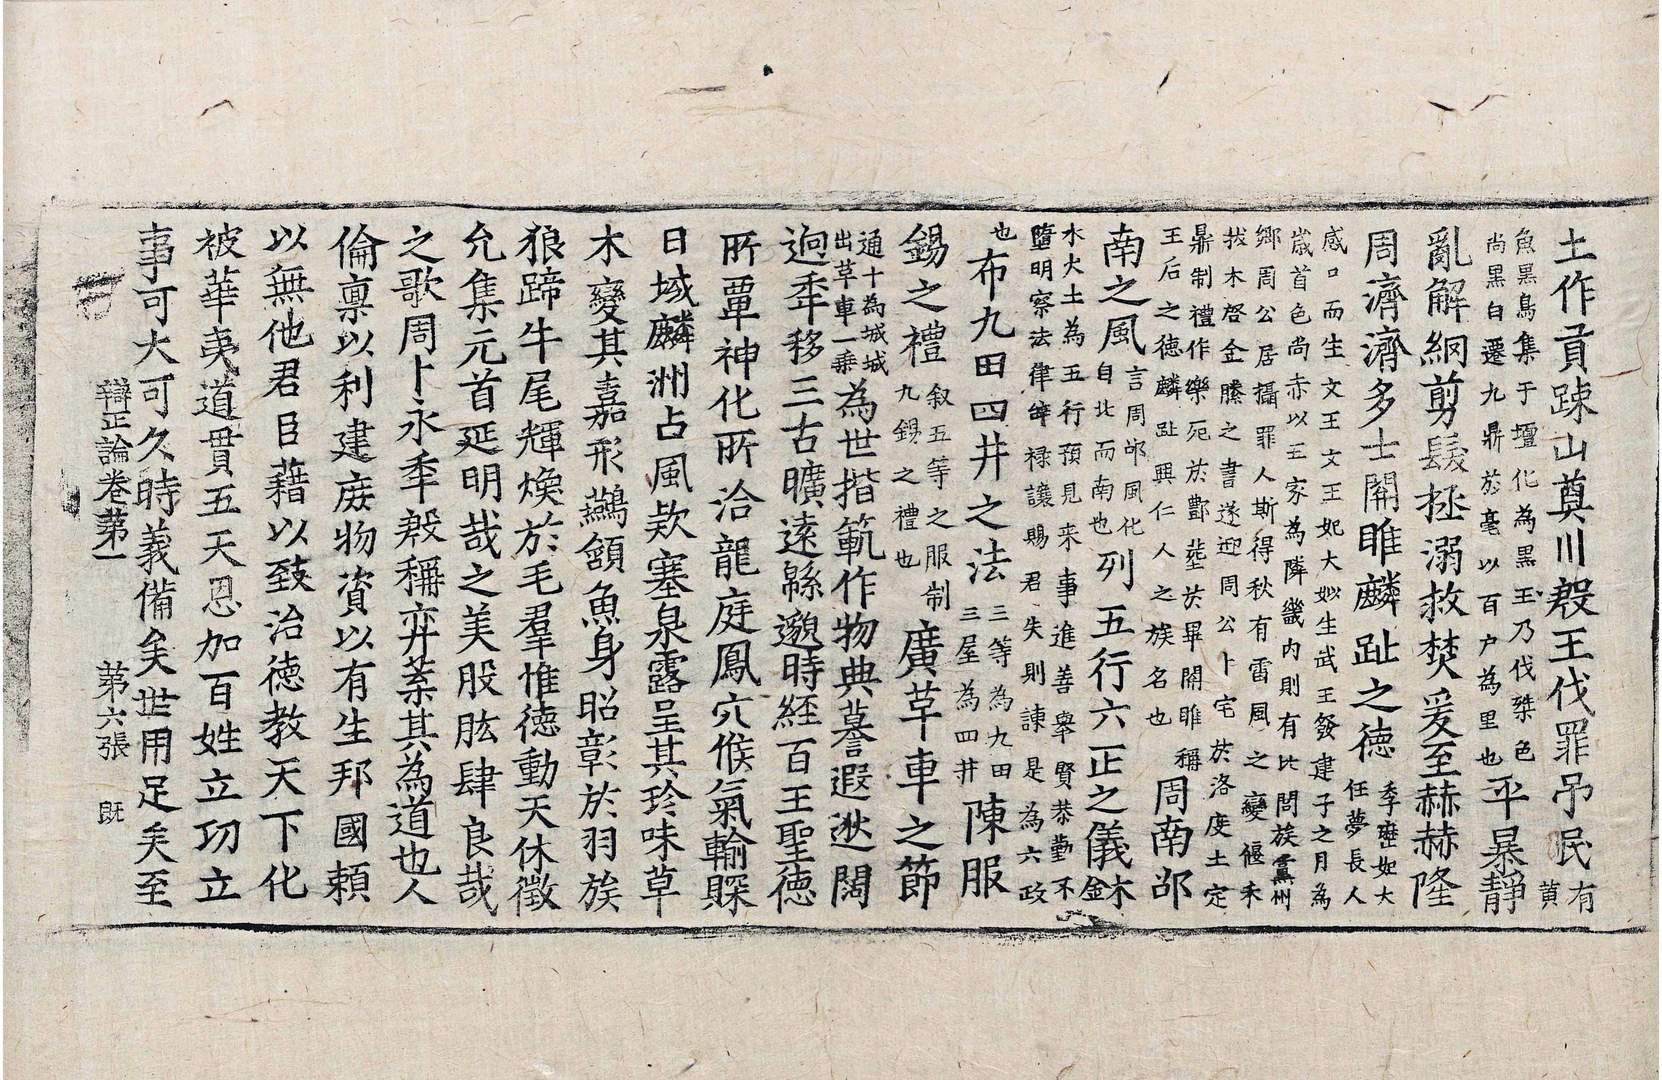 土作貢疎山奠川殷王伐罪吊民有黃
魚黑鳥集于壇化為黑玉乃伐桀色
尚黑白遷九鼎於亳以百户為里也平暴靜
亂解網剪髮拯溺救焚爰至赫赫隆
周濟濟多士關雎麟趾之德季歷妃大任夢長人
感口而生文王文王妃大姒生武王發建子之月為
歲首色尚赤以三家為隣畿内則有比閭族黨州
鄉周公居攝罪人斯得秋有雷風之變偃禾
拔木啓金縢之書遂迎周公卜宅於洛度土定
鼎制禮作樂死於酆葬於畢關雎稱
王后之德麟趾興仁人之族名也周南邵
南之風言周邵風化自北而南也列五行六正之儀木金
水火土為五行預見来事進善舉賢恭勤不
墮明察法律辞禄讓賜君失則諫是為六政
也布九田四井之法三等為九田三屋為四井陳服
錫之禮叙五等之服制九錫之禮也廣革車之節
通十為城城出革車一乗為世揩範作物典謩遐逖闊
逈年移三古曠遠緜邈時経百王聖德
所覃神化所洽龍庭鳳穴候氣輸賝
日域麟洲占風欵塞泉露呈其珍味草
木變其嘉形鷰頷魚身昭彰於羽族
狼蹄牛尾輝煥於毛羣惟德動天休徵
允集元首延明哉之美股肱肆良哉
之歌周卜永年殷稱弈葉其為道也人
倫稟以利建庶物資以有生邦國頼
以無他君臣藉以致治德教天下化
被華夷道貫五天恩加百姓立功立
事可大可久時義備矣世用足矣至
辯正論卷第一 第六張 既